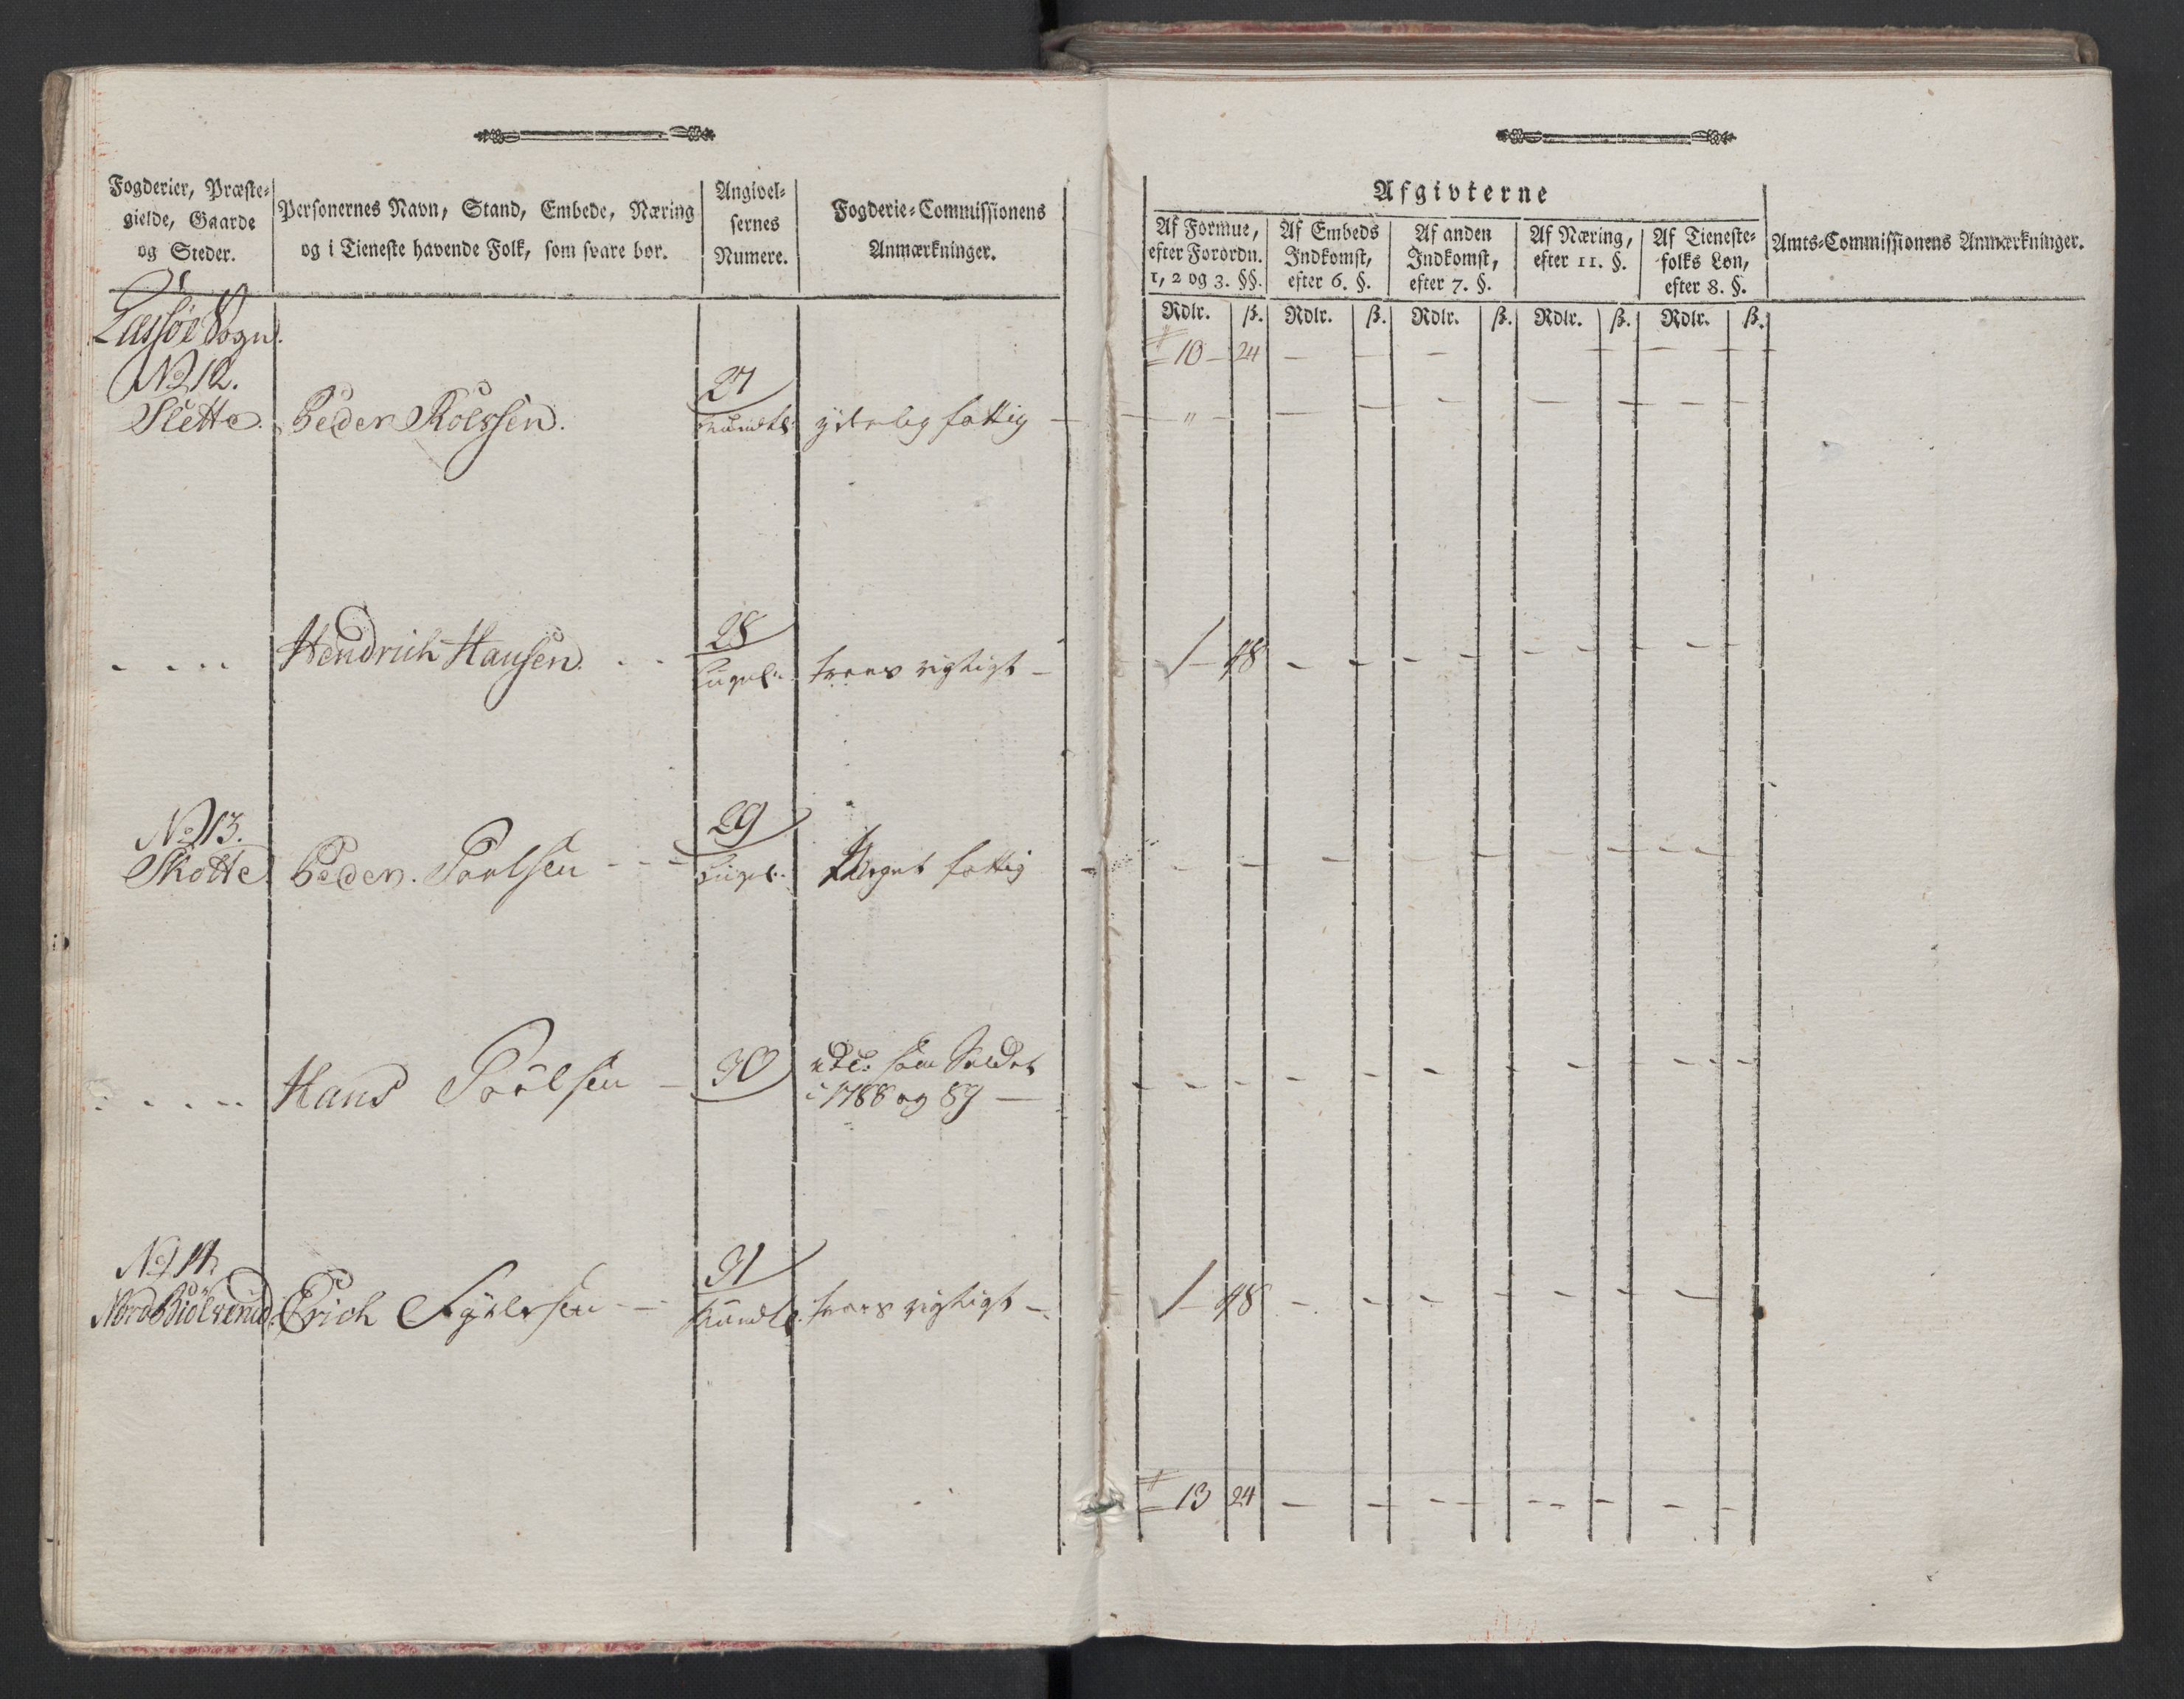 Fogderier, Præste-
gielde, Gaarde
og Steder.
Personernes Navn, Stand, Embede, Næring
og i Tieneste havende Folk, som svare bør.
Angivel-
sernes
Numere.
Fogderie-Commissionens
Anmærkninger.
Afgivterne
Af Formue,
efter Forordn.
1, 2 og 3. §§.
Af Embeds
Indkomst,
efter 6. §.
Af anden
Indkomst,
efter 7. §.
Af Næring,
efter 11. §.
Af Tieneste-
folks Løn,
efter 8. §.
Amts-Commissionens Anmærkninger.
Rdlr. ß. Rdlr. ß. Rdlr. ß. Rdlr. ß. Rdlr. ß.
Sogn.
10 - 24 - - - - - -
No 12.
27
Slette. Peder Rolfsen. mundtl: yderlig fattig - - " - - - - - - -
28
- - - - Hendrich Hansen. - - svares rigtigt - 1 - 48 - - - - - - - -
No 13.
29
Skotte Peder Povlsen - - - Meget fattig - - - - - - - - -
- - - - - Hans Povlsen - 30 som Soldat
i 1788 og 89 - - - - - - - - - - -
No 14.
31
Erich - - mundtl. svares rigtigt - 1 - 48 - - - - - - - -
13 24 - - - - - - - - -